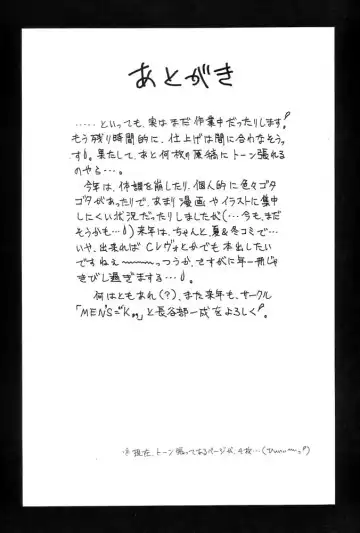 あとがき
‥‥‥といっても、実はまだ作業中だったりします!
もう残り時間的に、仕上げは間に合わなそうっ
す。果たして、あと何枚の原稿にトーン張れる
のやら‥‥。
今年は、体調を崩したり、個人的に色々ゴタ
ゴタがあったりで、あまり漫画やイラストに集中
しにくい状況だったりしましたが(‥‥今も、まだ
そうかも‥‥)来年は、ちゃんと、夏&冬コミで‥‥
いや、出来ればCレヴォとかでも本出したい
ですねぇ〜〜〜っつうか、さすがに年一冊じゃ
さびし過ぎまする‥‥。
何はともあれ(?)、また来年も、サークル
「MEN'S=K」と長谷部一成をよろしく!
※現在、トーン張ってあるページが、4枚‥‥